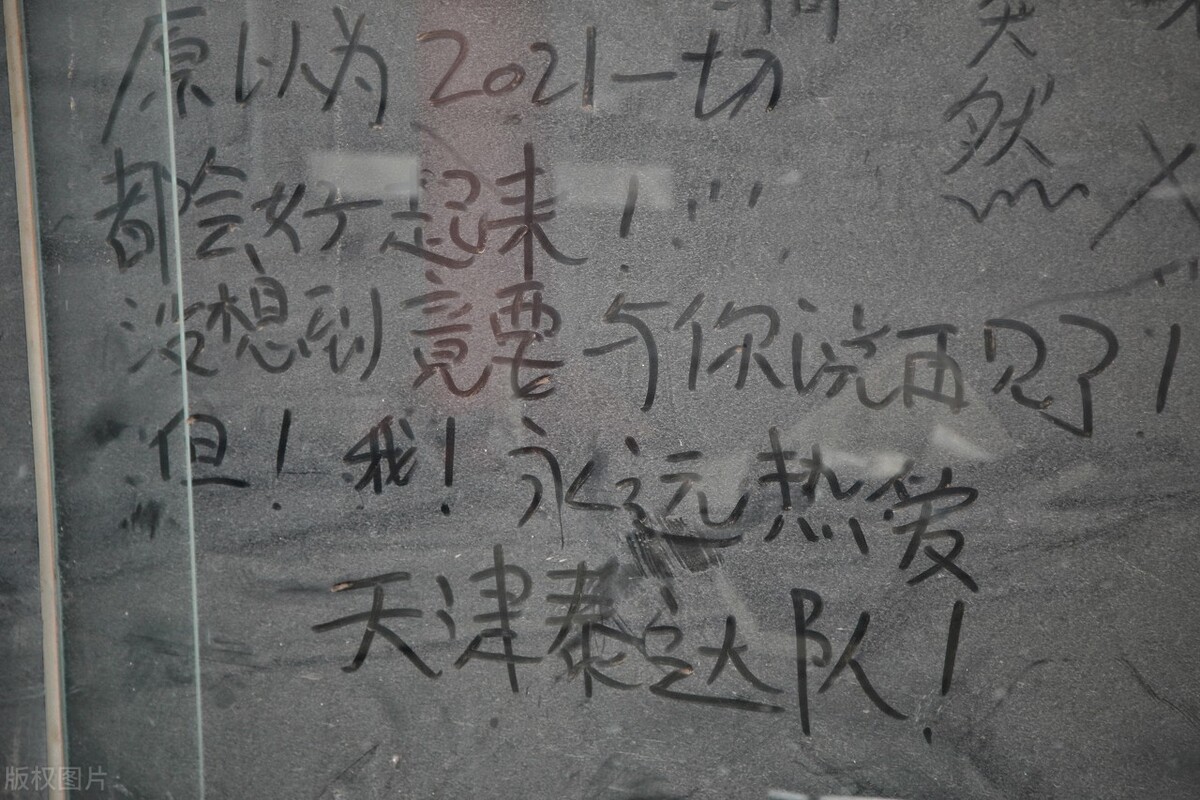 原以为2021一切
都会好起来！
没想到竟要与你说再见了！
但！我！永远热爱
天津泰达队！
然
版权图片